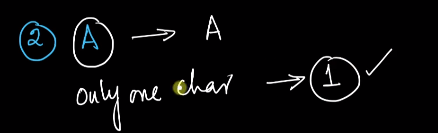 2 A → A
only one char → 1 ✓